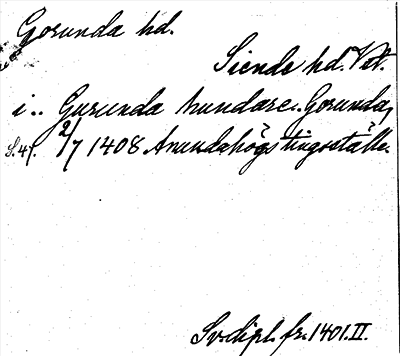 Gorunda hd.
Siende hd. Vst.
i.. Gurunda hundare.. Gorunda,
S. 47. 2/7 1408 Anundahögs tingsställe.
Sv. dipl. fr. 1401. II.